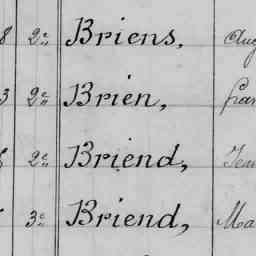 8 2e Briens, Aug
3 2e Brien, fran
2e Briend,
3e Briend, Ma